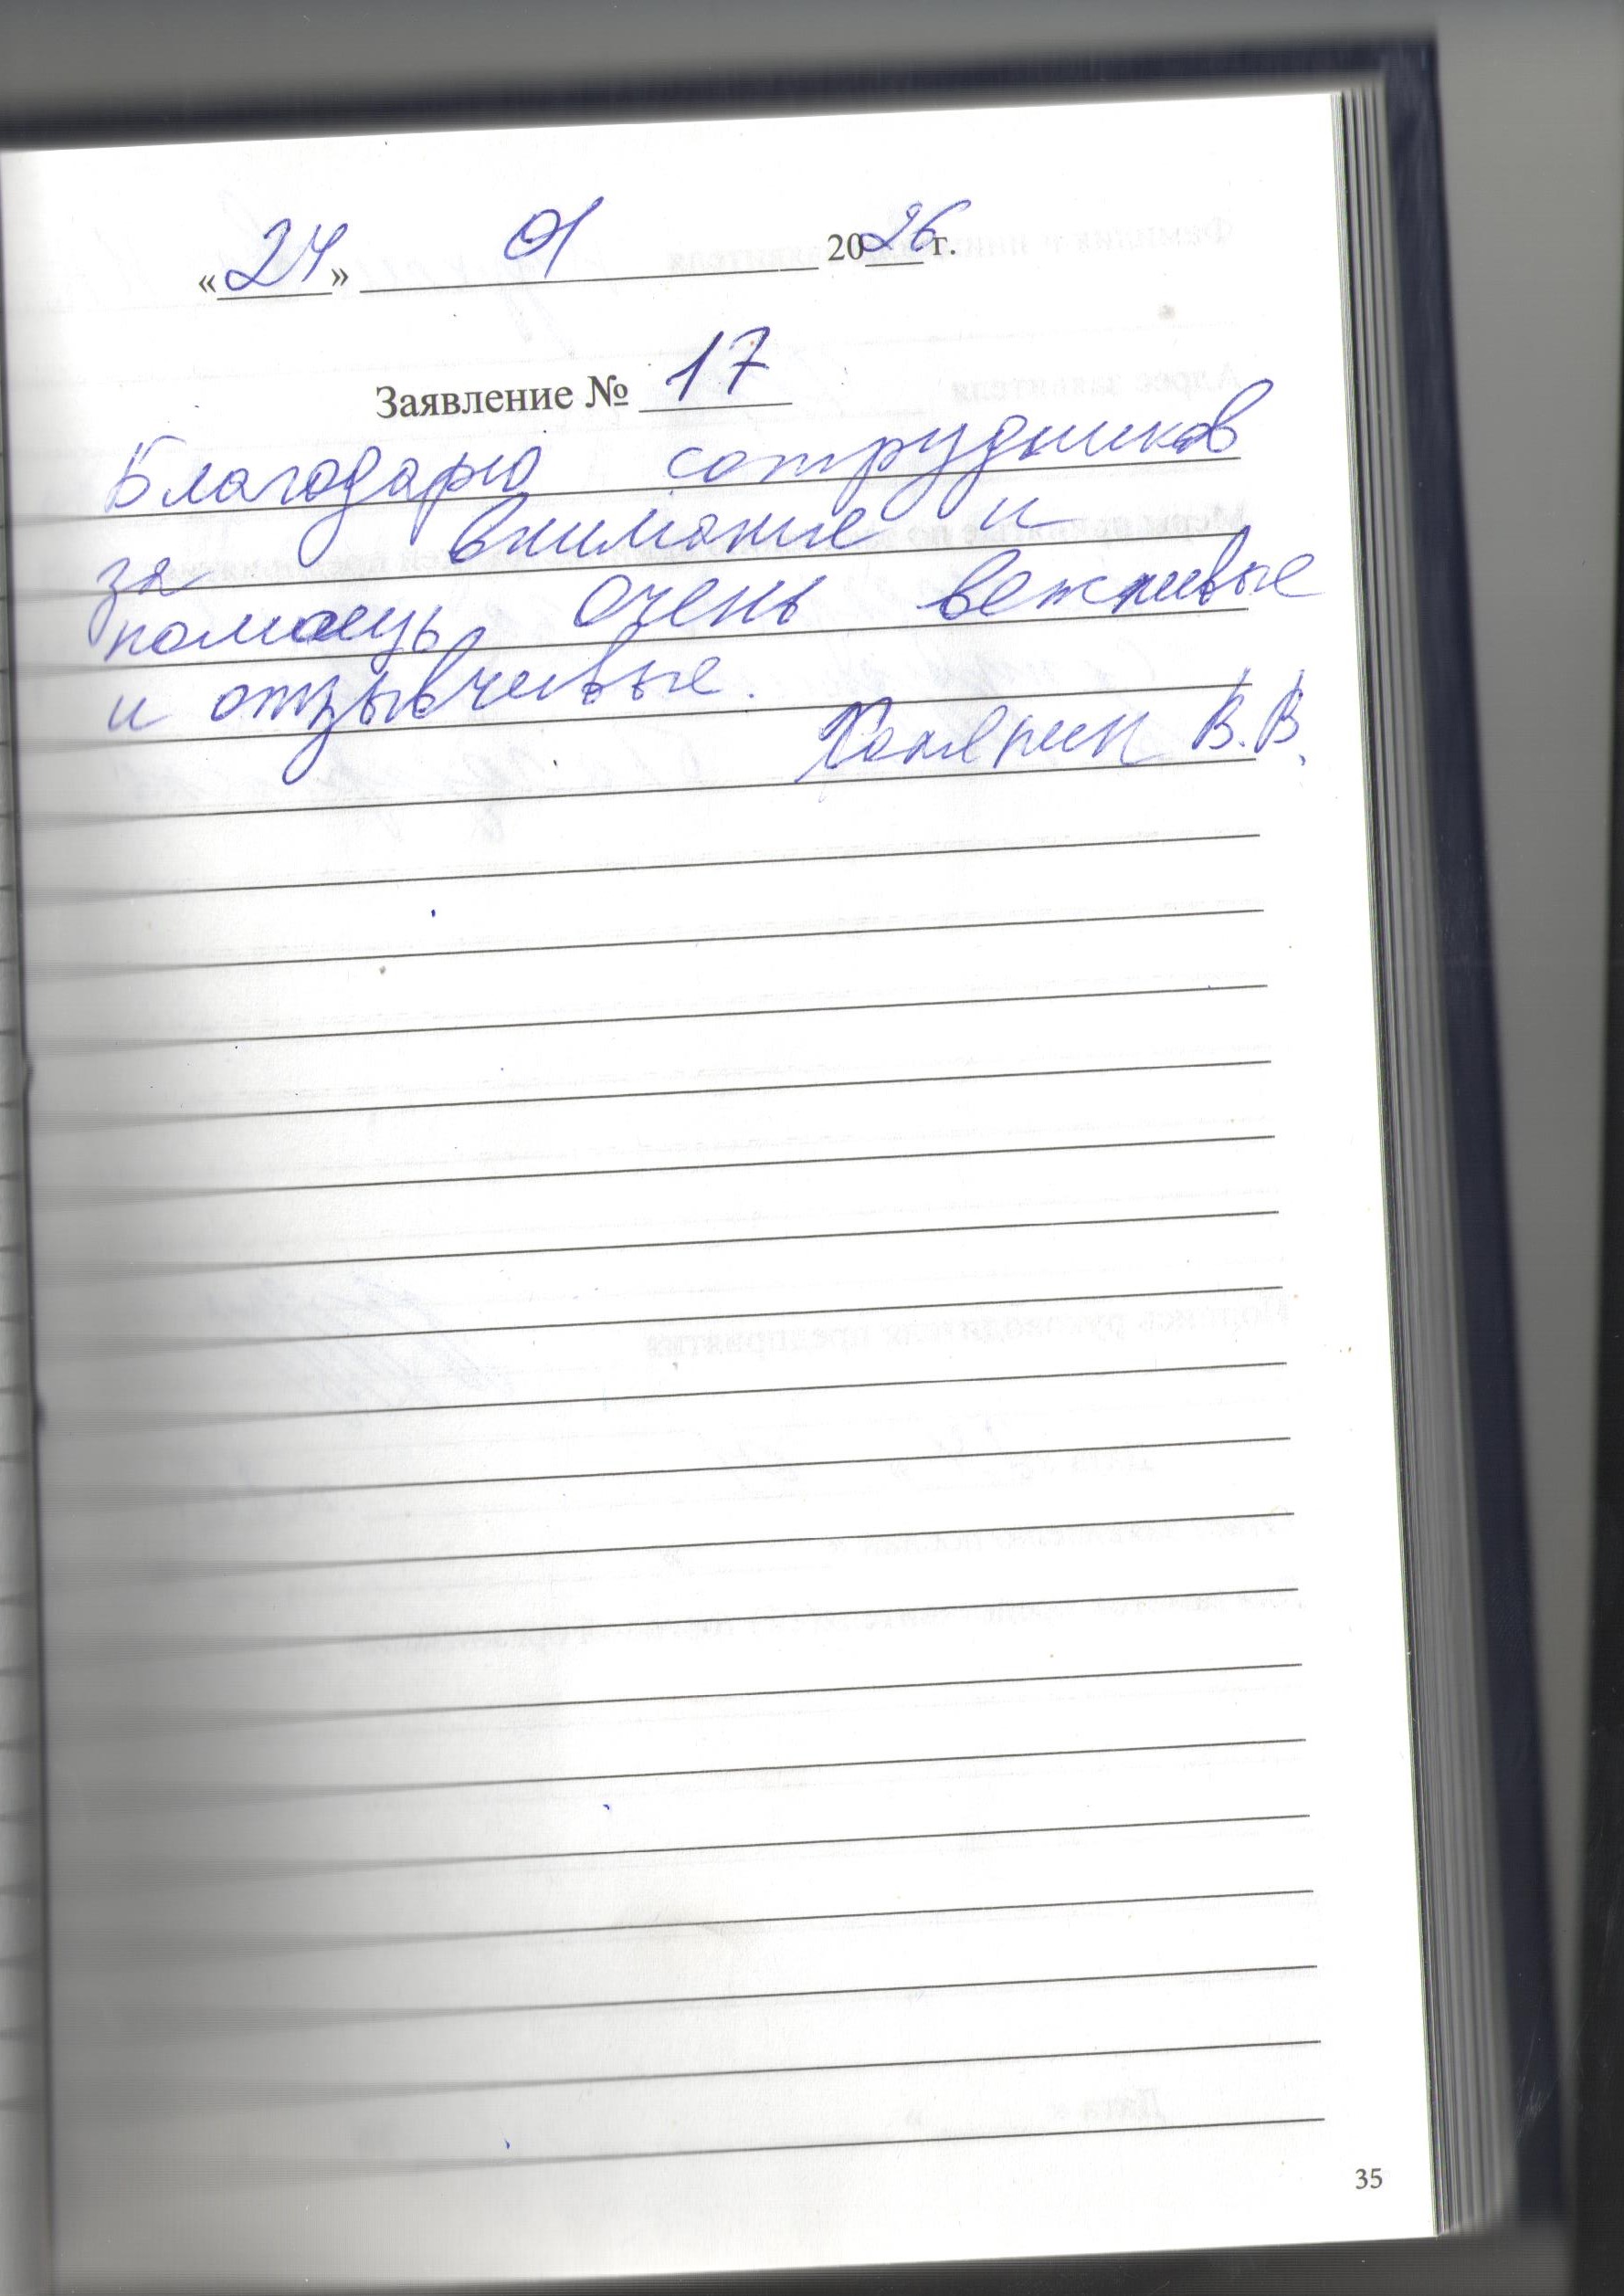 «24» 01 2026 г.
Заявление № 17
Благодарю сотрудников
за внимание и
помощь, очень вежливые
и отзывчивые.
В.В.
35